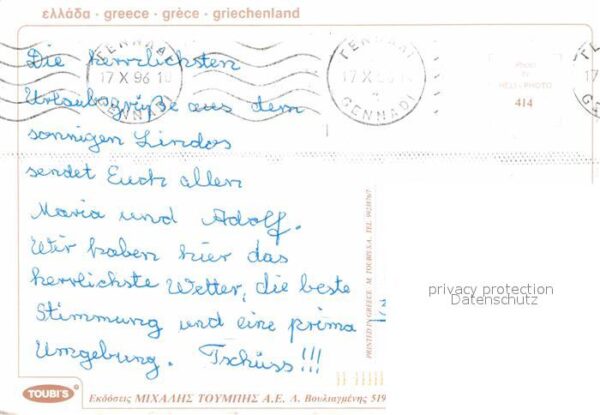 ελλάδα · greece · grèce · griechenland
ΓΕΝΝΑΔΙ
17 X 96 10
GENNADI
ΓΕΝΝΑΔΙ
17 X 96
GENNADI
17
PHOTO
BY
HELI - PHOTO
414
Die herrlichsten
Urlaubsgrüße aus dem
sonnigen Lindos
sendet Euch allen
Maria und Adolf.
Wir haben hier das
herrlichste Wetter, die beste
Stimmung und eine prima
Umgebung. Tschüss!!!
PRINTED IN GREECE - M. TOUBIS S.A., TEL. 9923876/7
privacy protection
Datenschutz
TOUBI'S
Εκδόσεις ΜΙΧΑΛΗΣ ΤΟΥΜΠΗΣ Α.Ε. Λ. Βουλιαγμένης 519